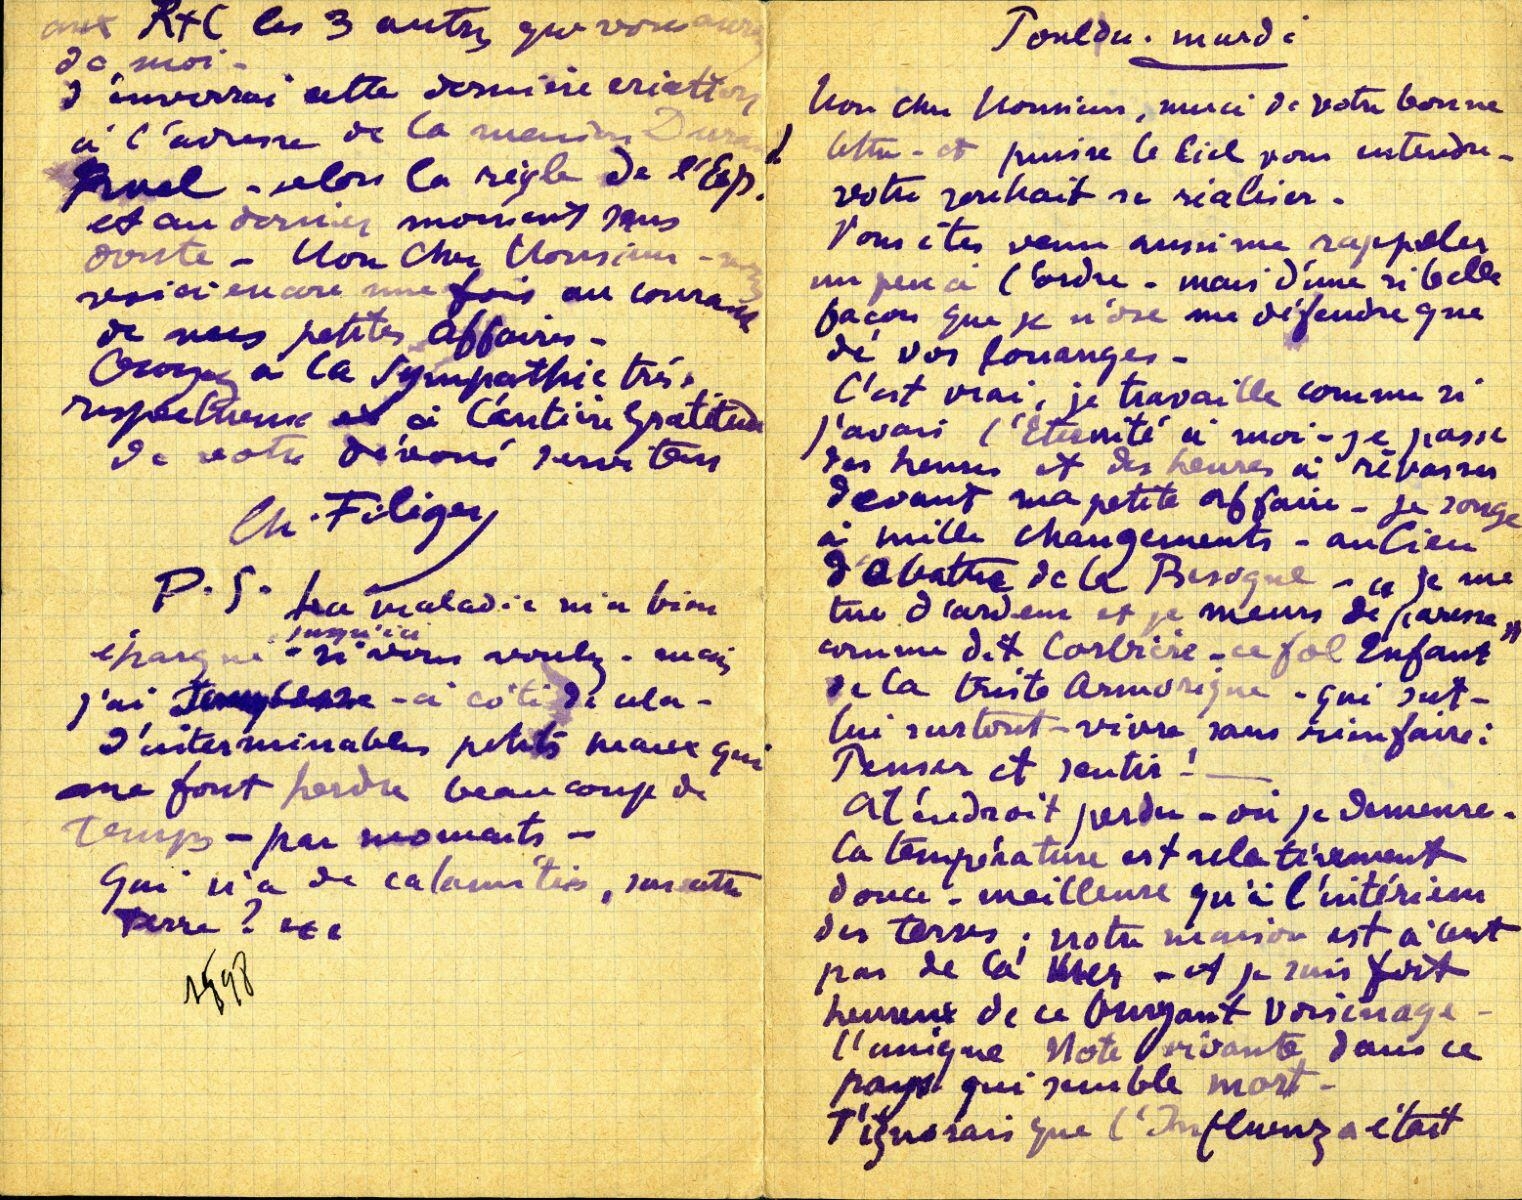 Pouldu. mardi
Mon cher Monsieur, merci de votre bonne
lettre - et puisse le Ciel vous entendre -
votre souhait se réaliser.
Vous êtes venu aussi me rappeler
un peu à l'ordre - mais d'une si belle
façon que je n'ose me défendre que
de vos louanges -
C'est vrai, je travaille comme si
j'avais l'Eternité à moi - je passe
des heures et des heures à rêvasser
devant ma petite affaire - je songe
à mille changements - au lieu
d'abattre de la Besogne - "je me
tue d'ardeur et je meurs de paresse"
comme dit Corbière - ce fol Enfant
de la triste Armorique - qui sut -
lui surtout - vivre sans rien faire:
Penser et sentir! —
A l'endroit perdu - où je demeure -
la température est relativement
douce - meilleure qu'à l'intérieur
des terres; notre maison est à cent
pas de la Mer - et je suis fort
heureux de ce bruyant voisinage -
l'unique Note vivante dans ce
pays qui semble mort -
J'ignorais que l'Influenza était
aux R+C les 3 autres que vous aurez
de moi -
J'enverrai cette dernière création
à l'adresse de la maison Durand
Ruel - selon la règle de l'Exp.
et au dernier moment sans
doute - Mon cher Monsieur -
voici encore une fois au courant
de mes petites affaires -
Croyez à la Sympathie très
respectueuse et à l'entière gratitude
de votre dévoué serviteur
Ch. Filiger
P.S. La maladie m'a bien
épargné jusqu'ici - si vous voulez - mais
j'ai - à côté de cela -
d'interminables petits maux qui
me font perdre beaucoup de
temps - par moments -
Qui n'a de calamités, sur cette
terre? etc